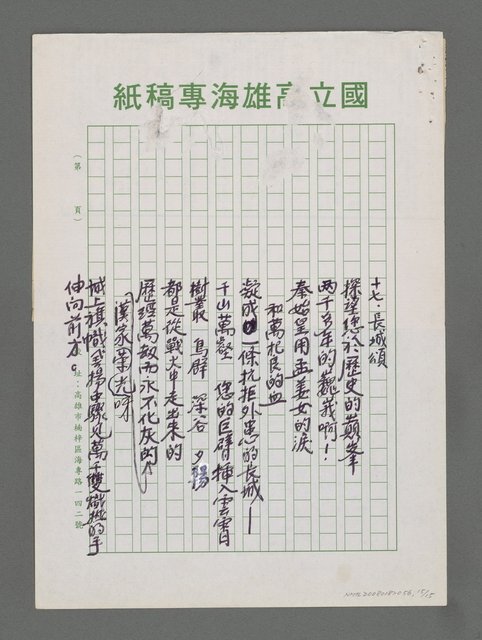 國立高雄海專稿紙
（第　頁）
十七、長城頌
探望您於歷史的巔峯
兩千多年的巍峩啊！
秦始皇用孟姜女的淚
和萬杞良的血
凝成一條抗拒外患的長城—
千山萬壑　您的巨臂揷入雲霄
樹叢　鳥群　深谷　夕陽
都是從戰火中走出來的
歷經萬劫而永不化灰的
漢家
城上旗幟飛揚中驟見萬千雙的手
伸向前方。
址：高雄市楠梓區海專路一四二號
NMTL20080182056, 15/15